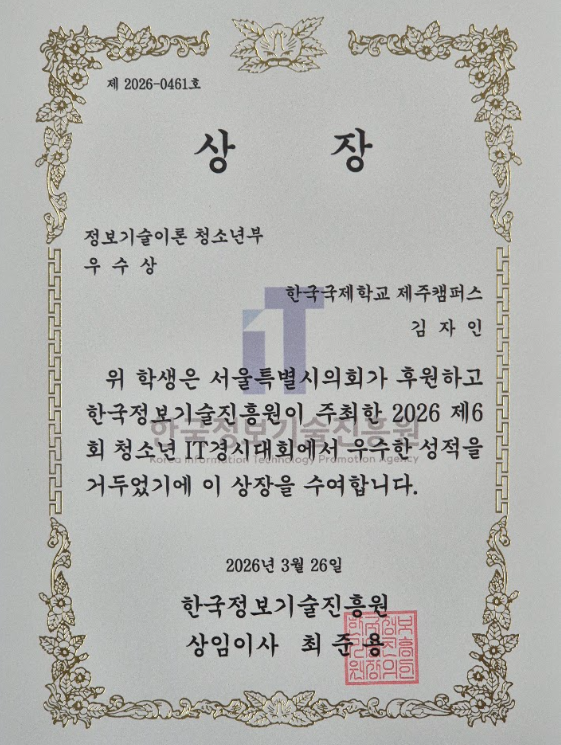 제 2026-0461호
상 장
정보기술이론 청소년부
우 수 상
한국국제학교 제주캠퍼스
김 자 인
위 학생은 서울특별시의회가 후원하고
한국정보기술진흥원이 주최한 2026 제6
회 청소년 IT경시대회에서 우수한 성적을
거두었기에 이 상장을 수여합니다.
iT
한국정보기술진흥원
Korea Information Technology Promotion Agency
2026년 3월 26일
한국정보기술진흥원
상임이사 최 준 용